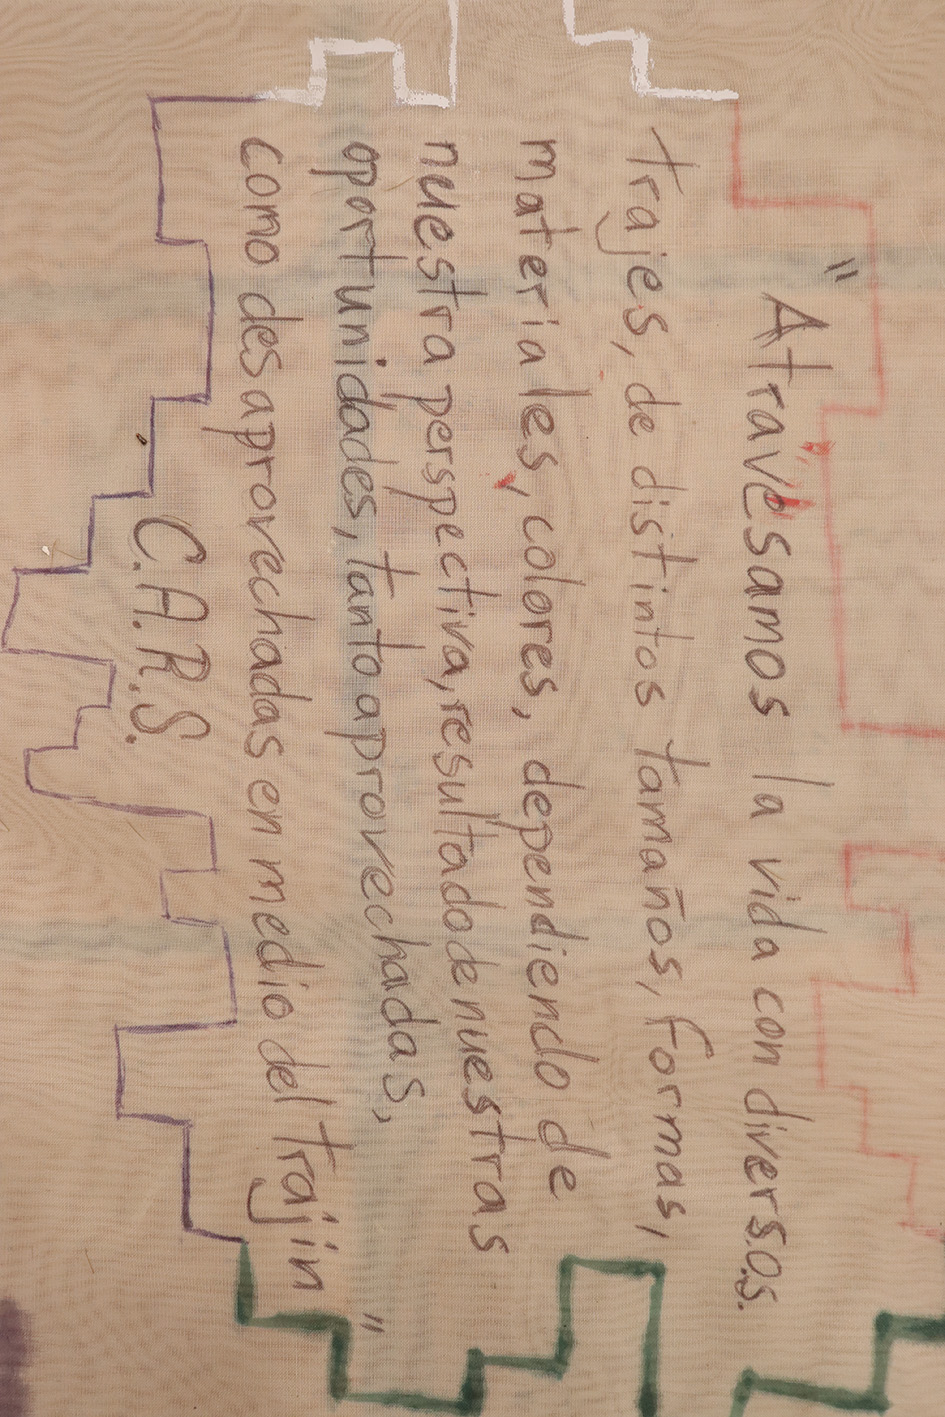 "Atravesamos la vida con diversos
trajes, de distintos tamaños, formas,
materiales, colores, dependiendo de
nuestra perspectiva, resultado de nuestras
oportunidades, tanto aprovechadas,
como desaprovechadas en medio del trajin"
C.A.R.S.